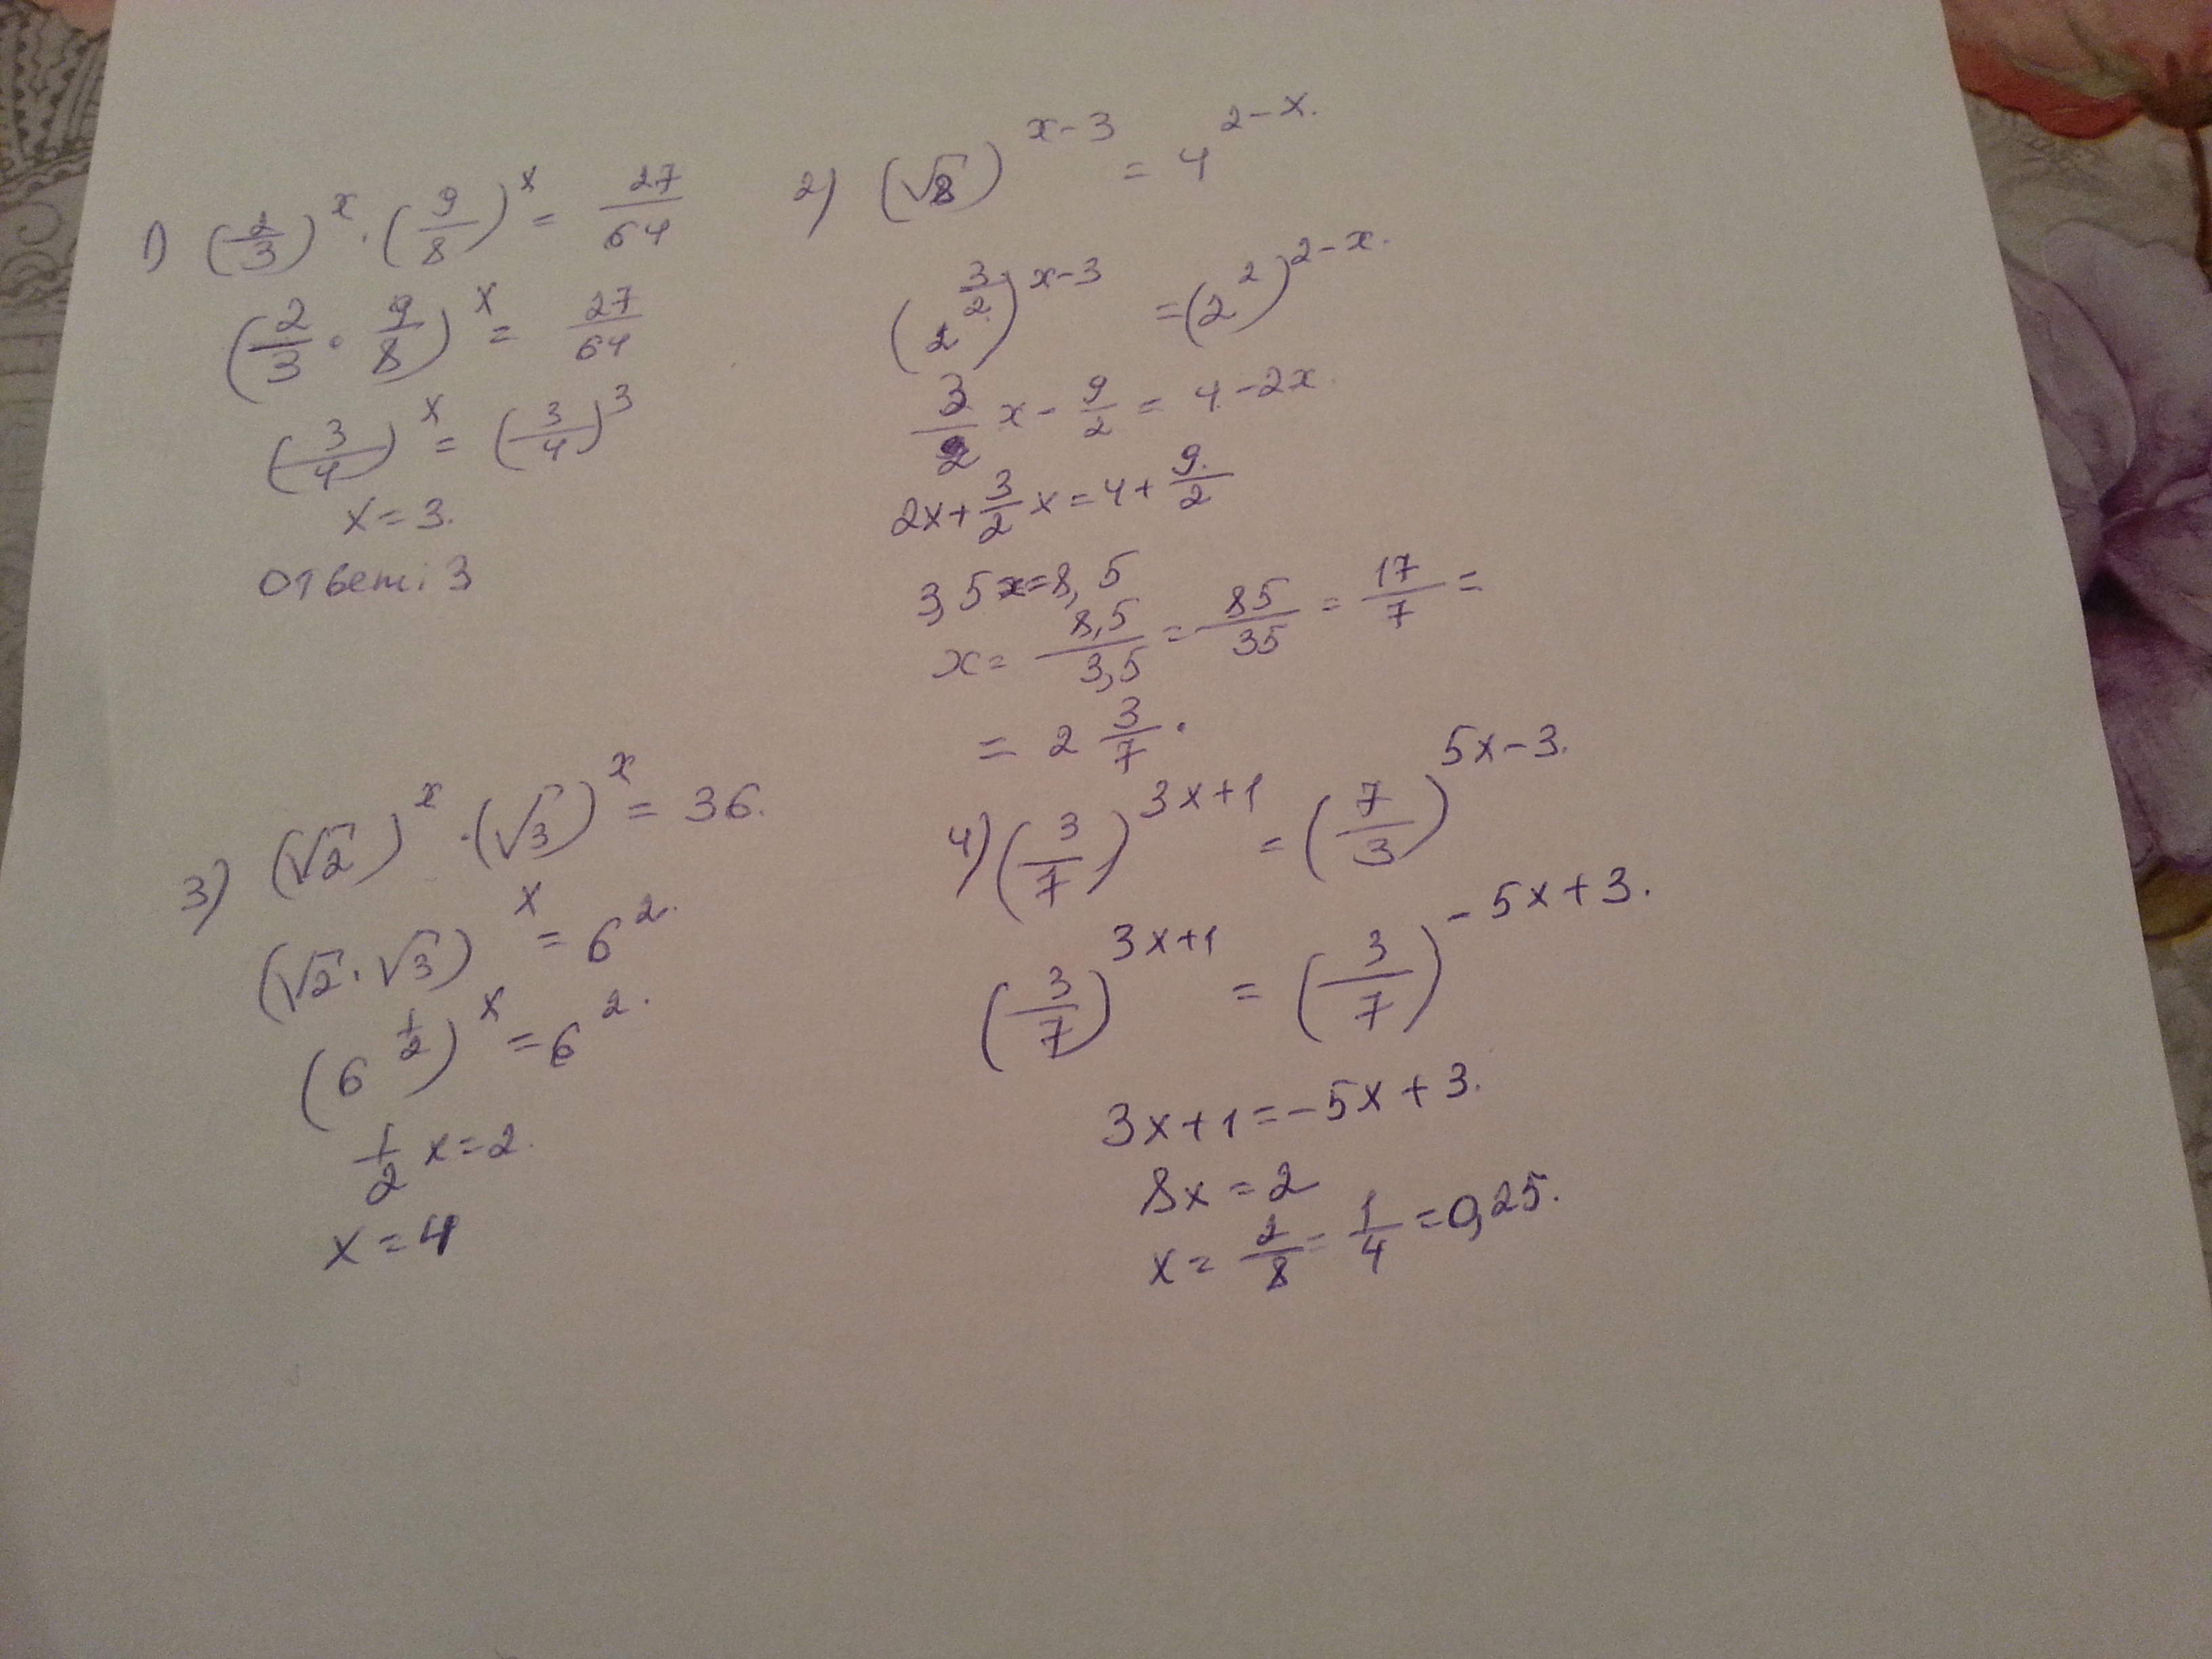 1) (2/3)^x · (9/8)^x = 27/64
(2/3 · 9/8)^x = 27/64
(3/4)^x = (3/4)^3
x = 3.
Ответ: 3
2) (√8)^(x-3) = 4^(2-x).
(2^(3/2))^(x-3) = (2^2)^(2-x).
3/2 x - 9/2 = 4 - 2x
2x + 3/2 x = 4 + 9/2
3,5x = 8,5
x = 8,5/3,5 = 85/35 = 17/7 =
= 2 3/7.
3) (√2)^x · (√3)^x = 36.
(√2 · √3)^x = 6^2.
(6^(1/2))^x = 6^2.
1/2 x = 2.
x = 4
4) (3/7)^(3x+1) = (7/3)^(5x-3).
(3/7)^(3x+1) = (3/7)^(-5x+3).
3x+1 = -5x+3.
8x = 2
x = 2/8 = 1/4 = 0,25.